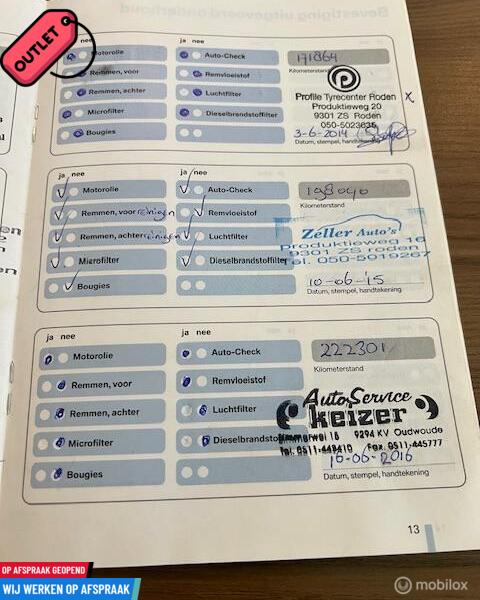 OUTLET
ja nee
ja nee
Motorolie
Auto-Check
171864
Remmen, voor
Remvloeistof
Kilometerstand
Remmen, achter
Luchtfilter
Profile Tyrecenter Roden
Produktieweg 20
Microfilter
Dieselbrandstoffilter
9301 ZS Roden
050-5023635
Bougies
3-6-2014
Datum, stempel, handtekening
ja nee
ja nee
Motorolie
Auto-Check
198040
Remmen, voor reinigen
Remvloeistof
Kilometerstand
Remmen, achter reinigen
Luchtfilter
Zeller Auto's
Produktieweg 16
9301 ZS roden
Microfilter
Dieselbrandstoffilter
Tel. 050-5019267
Bougies
10-06-'15
Datum, stempel, handtekening
ja nee
ja nee
Motorolie
Auto-Check
222301
Remmen, voor
Remvloeistof
Kilometerstand
Remmen, achter
Luchtfilter
AutoService
keizer
Microfilter
9294 KV Oudwoude
Fax. 0511-445777
Bougies
16-06-2016
Datum, stempel, handtekening
13
OP AFSPRAAK GEOPEND
WIJ WERKEN OP AFSPRAAK
mobilox